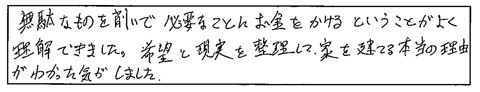 無駄なものを削いで 必要なことにお金をかける ということがよく
理解できました。希望と現実を整理して、家を建てる本当の理由
がわかった気がしました。